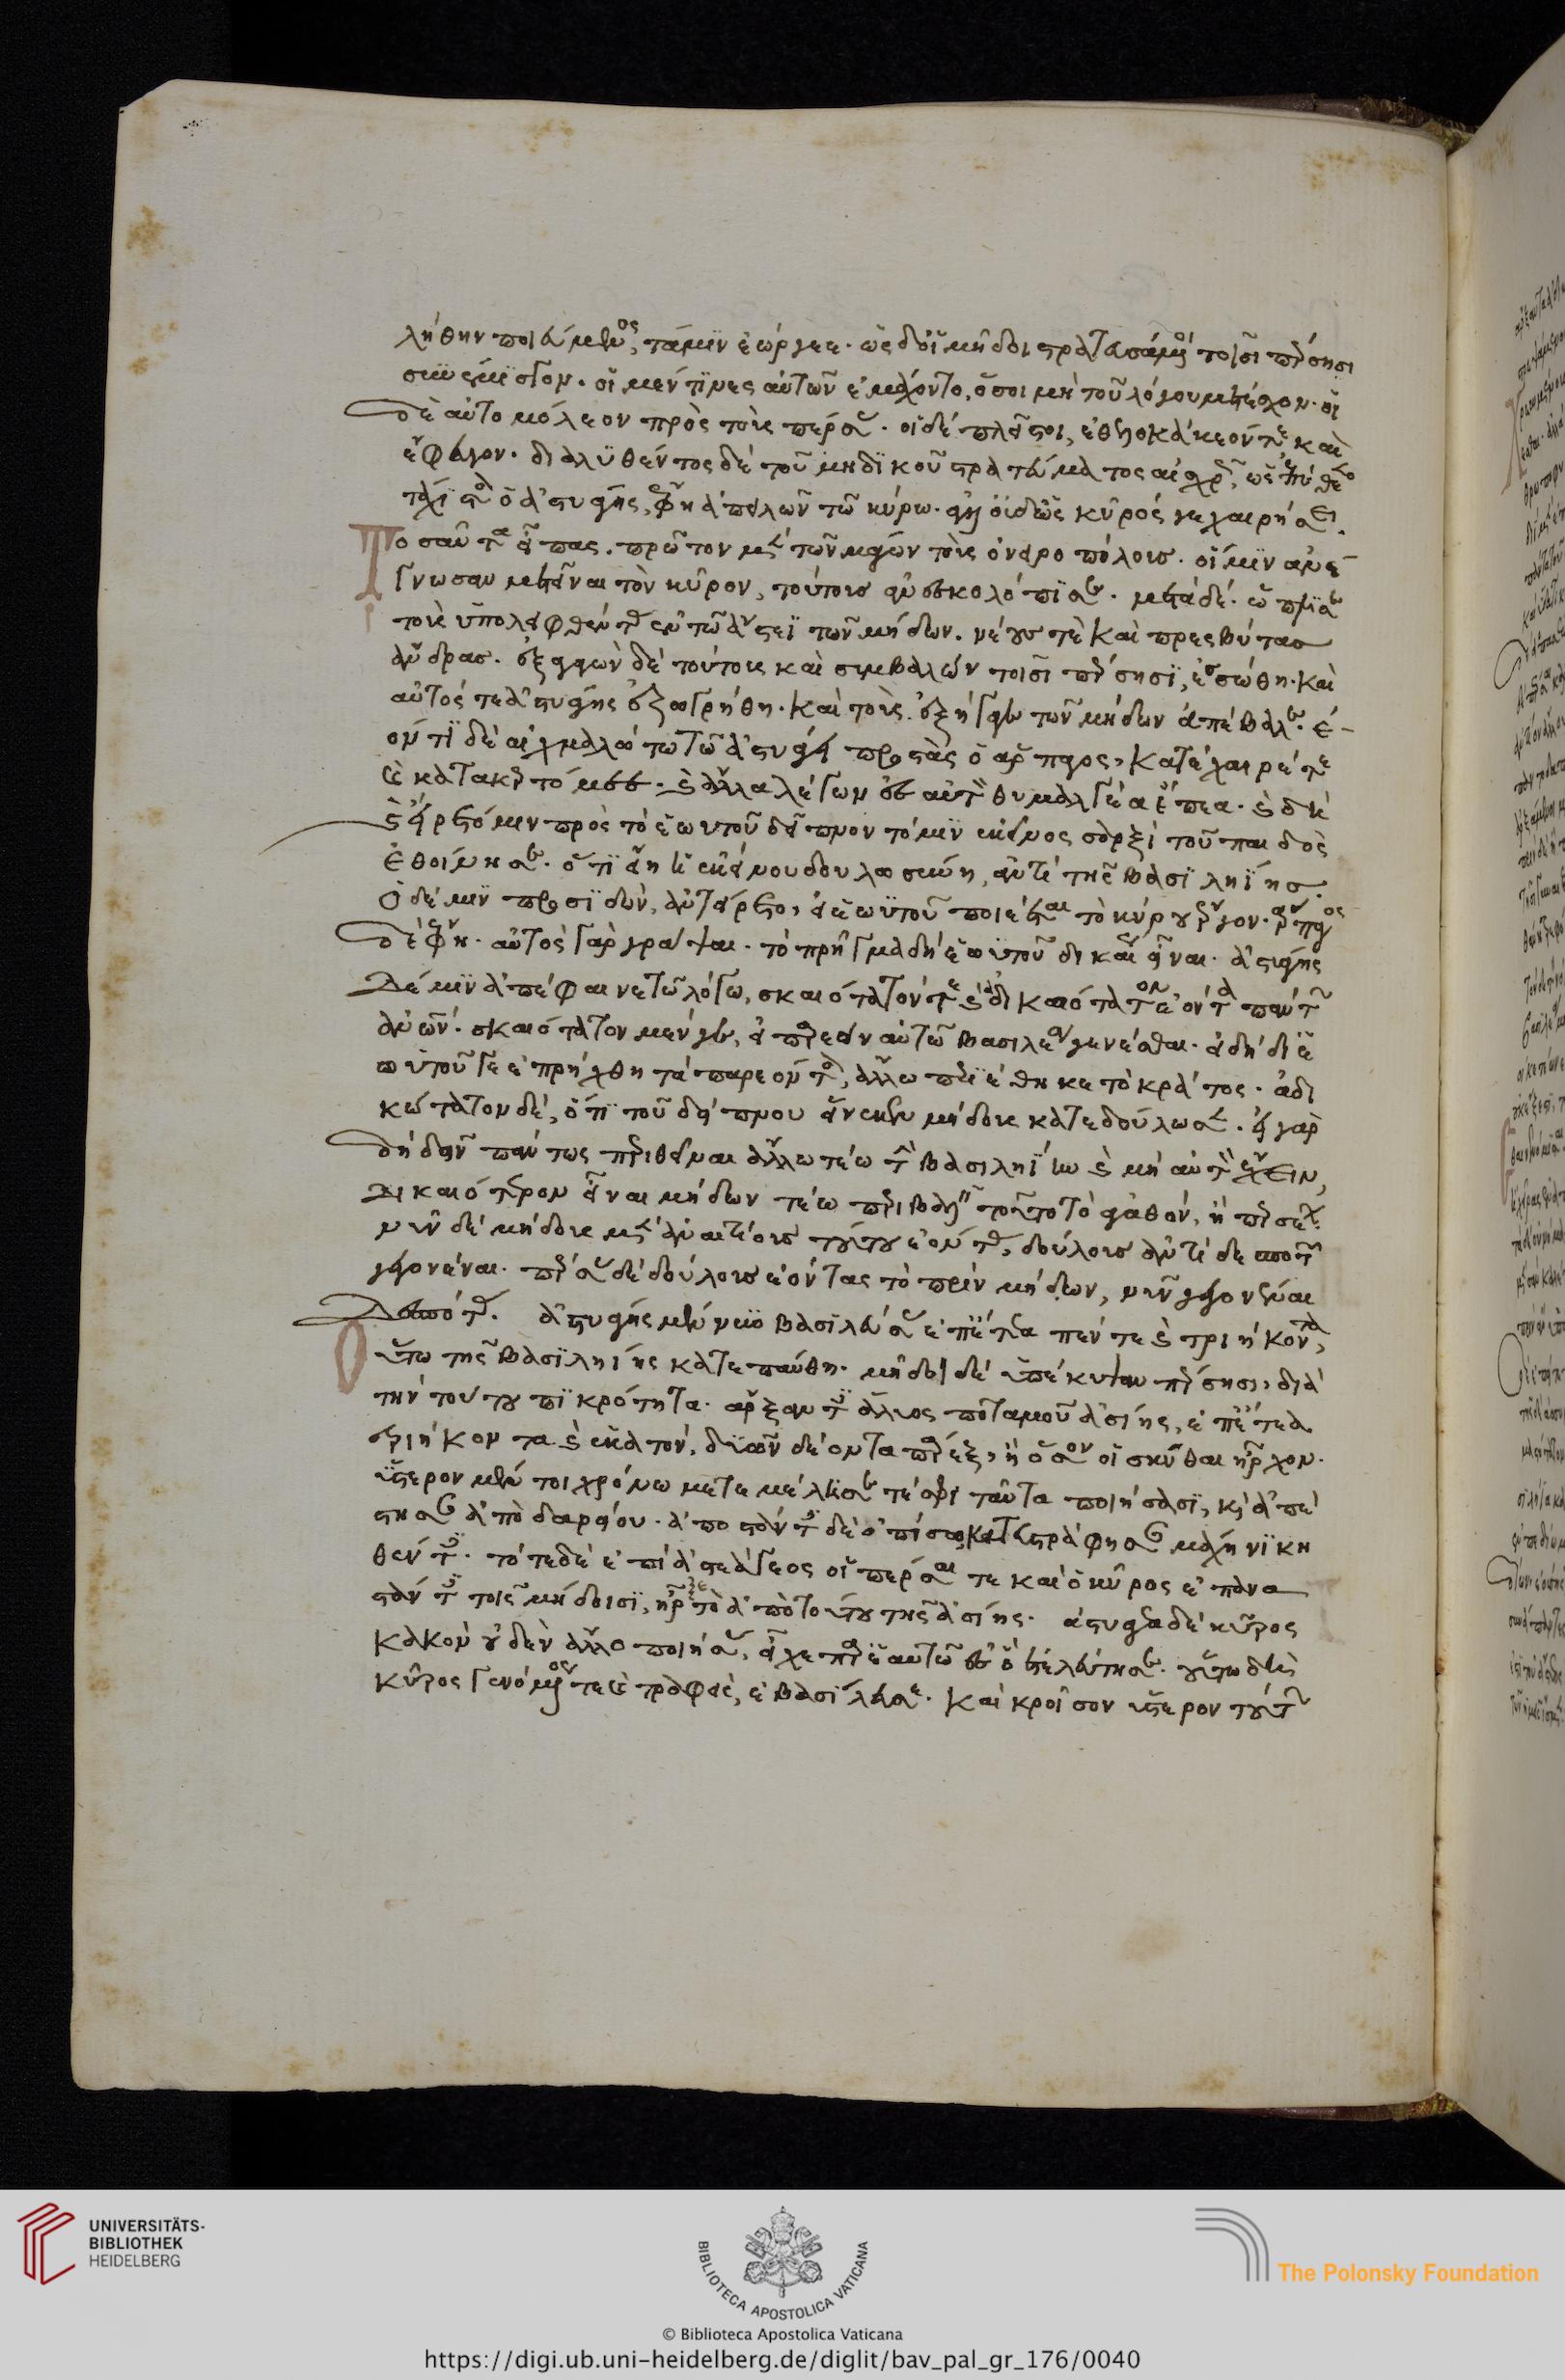 λήθην ποιεύμενος, τάμιν ἐώργεε. ὡς δὲ οἱ μῆδοι στρατευσάμενοι τοῖσι πέρσησι
συνέμισγον. οἱ μέν τινες αὐτῶν ἐμάχοντο, ὅσοι μὴ τοῦ λόγου μετέσχον. οἱ
δὲ αὐτομόλεον πρὸς τοὺς πέρσας. οἱ δὲ πλεῖστοι, ἐθελοκάκεόν τε καὶ
ἔφευγον. διαλυθέντος δὲ τοῦ μηδικοῦ στρατεύματος αἰσχρῶς, ὡς ἐπύθετο
τάχιστα ὁ ἀστυάγης, ἔφη ἀπειλῶν τῶ κύρω. οὐδ' ὣς κῦρός γε χαιρήσει.
Τοσαῦτα εἴπας. πρῶτον μὲν τῶν μάγων τοὺς ὀνειροπόλους. οἵ μιν ἀνέ-
γνωσαν μετεῖναι τὸν κῦρον, τούτους ἀνεσκολόπισε. μετὰ δέ. ὥπλισε
τοὺς ὑπολειφθέντας ἐν τῶ ἄστεϊ τῶν μήδων. νέους τὲ καὶ πρεσβύτας
ἄνδρας. ἐξαγαγὼν δὲ τούτους καὶ συμβαλὼν τοῖσι πέρσησι, ἑσσώθη. καὶ
αὐτός τε ἀστυάγης ἐζωγρήθη. καὶ τοὺς ἐξήγαγε τῶν μήδων ἀπέβαλε. ἐ-
όντι δὲ αἰχμαλώτω τῶ ἀστυάγει προστὰς ὁ ἅρπαγος, κατέχαιρέ τε
καὶ κατακερτόμεε. καὶ ἄλλα λέγων ἐς αὐτὸν θυμαλγέα ἔπεα. καὶ δὴ
καὶ εἴρετό μιν πρὸς τὸ ἑωυτοῦ δεῖπνον τό μιν ἐκεῖνος σαρξὶ τοῦ παιδὸς
ἐθοίνησε. ὅ τι εἴη ἡ ἐκείνου δουλοσύνη, ἀντὶ τῆς βασιληίης.
Ὁ δέ μιν προσιδὼν, ἀντείρετο, εἰ ἑωυτοῦ ποιέεται τὸ κύρου ἔργον. ἅρπαγος
δὲ ἔφη. αὐτὸς γὰρ γράψαι. τὸ πρῆγμα δὴ ἑωυτοῦ δικαίως εἶναι. ἀστυάγης
δέ μιν ἀπέφαινε τῶ λόγω, σκαιότατόν τε καὶ ἀδικαιότατον ἐόντα πάντων
ἀνθρώπων. σκαιότατον μέν γε, εἰ παρεὸν αὐτῶ βασιλέα γενέσθαι. εἰ δὴ δι ἑ
ωυτοῦ γε ἐπρήχθη τὰ παρεόντα, ἄλλω περιέθηκε τὸ κράτος. ἀδι
κώτατον δέ, ὅτι τοῦ δείπνου εἵνεκεν μήδους κατεδούλωσε. εἰ γὰρ
δὴ δεῖν πάντως περιθεῖναι ἄλλω τέω τὴν βασιληίην καὶ μὴ αὐτὸν ἔχειν,
δικαιότερον εἶναι μήδων τέω περιβαλεῖν τοῦτο τὸ ἀγαθόν, ἢ περσέων.
νῦν δὲ μήδους μὲν ἀναιτίους τούτου ἐόντας, δούλους ἀντὶ δεσποτῶν
γεγονέναι. πέρσας δὲ δούλους ἐόντας τὸ πρὶν μήδων, νῦν γεγονέναι
δεσπότας. ἀστυάγης μέν νυν βασιλεύσας ἐπ' ἔτεα πέντε καὶ τριήκοντα,
Οὕτω τῆς βασιληίης κατεπαύθη. μῆδοι δὲ ὑπέκυψαν πέρσησι, διὰ
τὴν τούτου πικρότητα. ἄρξαντες τῆς ἄνω ἅλυος ποταμοῦ ἀσίης, ἐπ' ἔτεα
τριήκοντα καὶ ἑκατόν, δυῶν δέοντα παρὲξ, ἢ ὅσον οἱ σκύθαι ἦρχον.
ὕστερον μέντοι χρόνω μετεμέλησέ τέ σφι ταῦτα ποιήσασι, καὶ ἀπέ
στησαν ἀπὸ δαρείου. ἀποστάντες δὲ ὀπίσω κατεστράφησαν μάχη νικη
θέντες. τότε δὲ ἐπὶ ἀστυάγεος οἱ πέρσαι τε καὶ ὁ κῦρος ἐπανα
στάντες τοῖς μήδοισι, ἦρξαν τὸ ἀπὸ τούτου τῆς ἀσίης. ἀστυάγεα δὲ κῦρος
κακὸν οὐδὲν ἄλλο ποιήσας, εἶχε παρ' ἑαυτῶ ἐς ὃ ἐτελεύτησε. οὕτω δὴ
κῦρος γενόμενός τε καὶ τραφεὶς, ἐβασίλευσε. καὶ κροῖσον ὕστερον τούτων
UNIVERSITÄTS-
BIBLIOTHEK
HEIDELBERG
BIBLIOTECA APOSTOLICA VATICANA
The Polonsky Foundation
© Biblioteca Apostolica Vaticana
https://digi.ub.uni-heidelberg.de/diglit/bav_pal_gr_176/0040